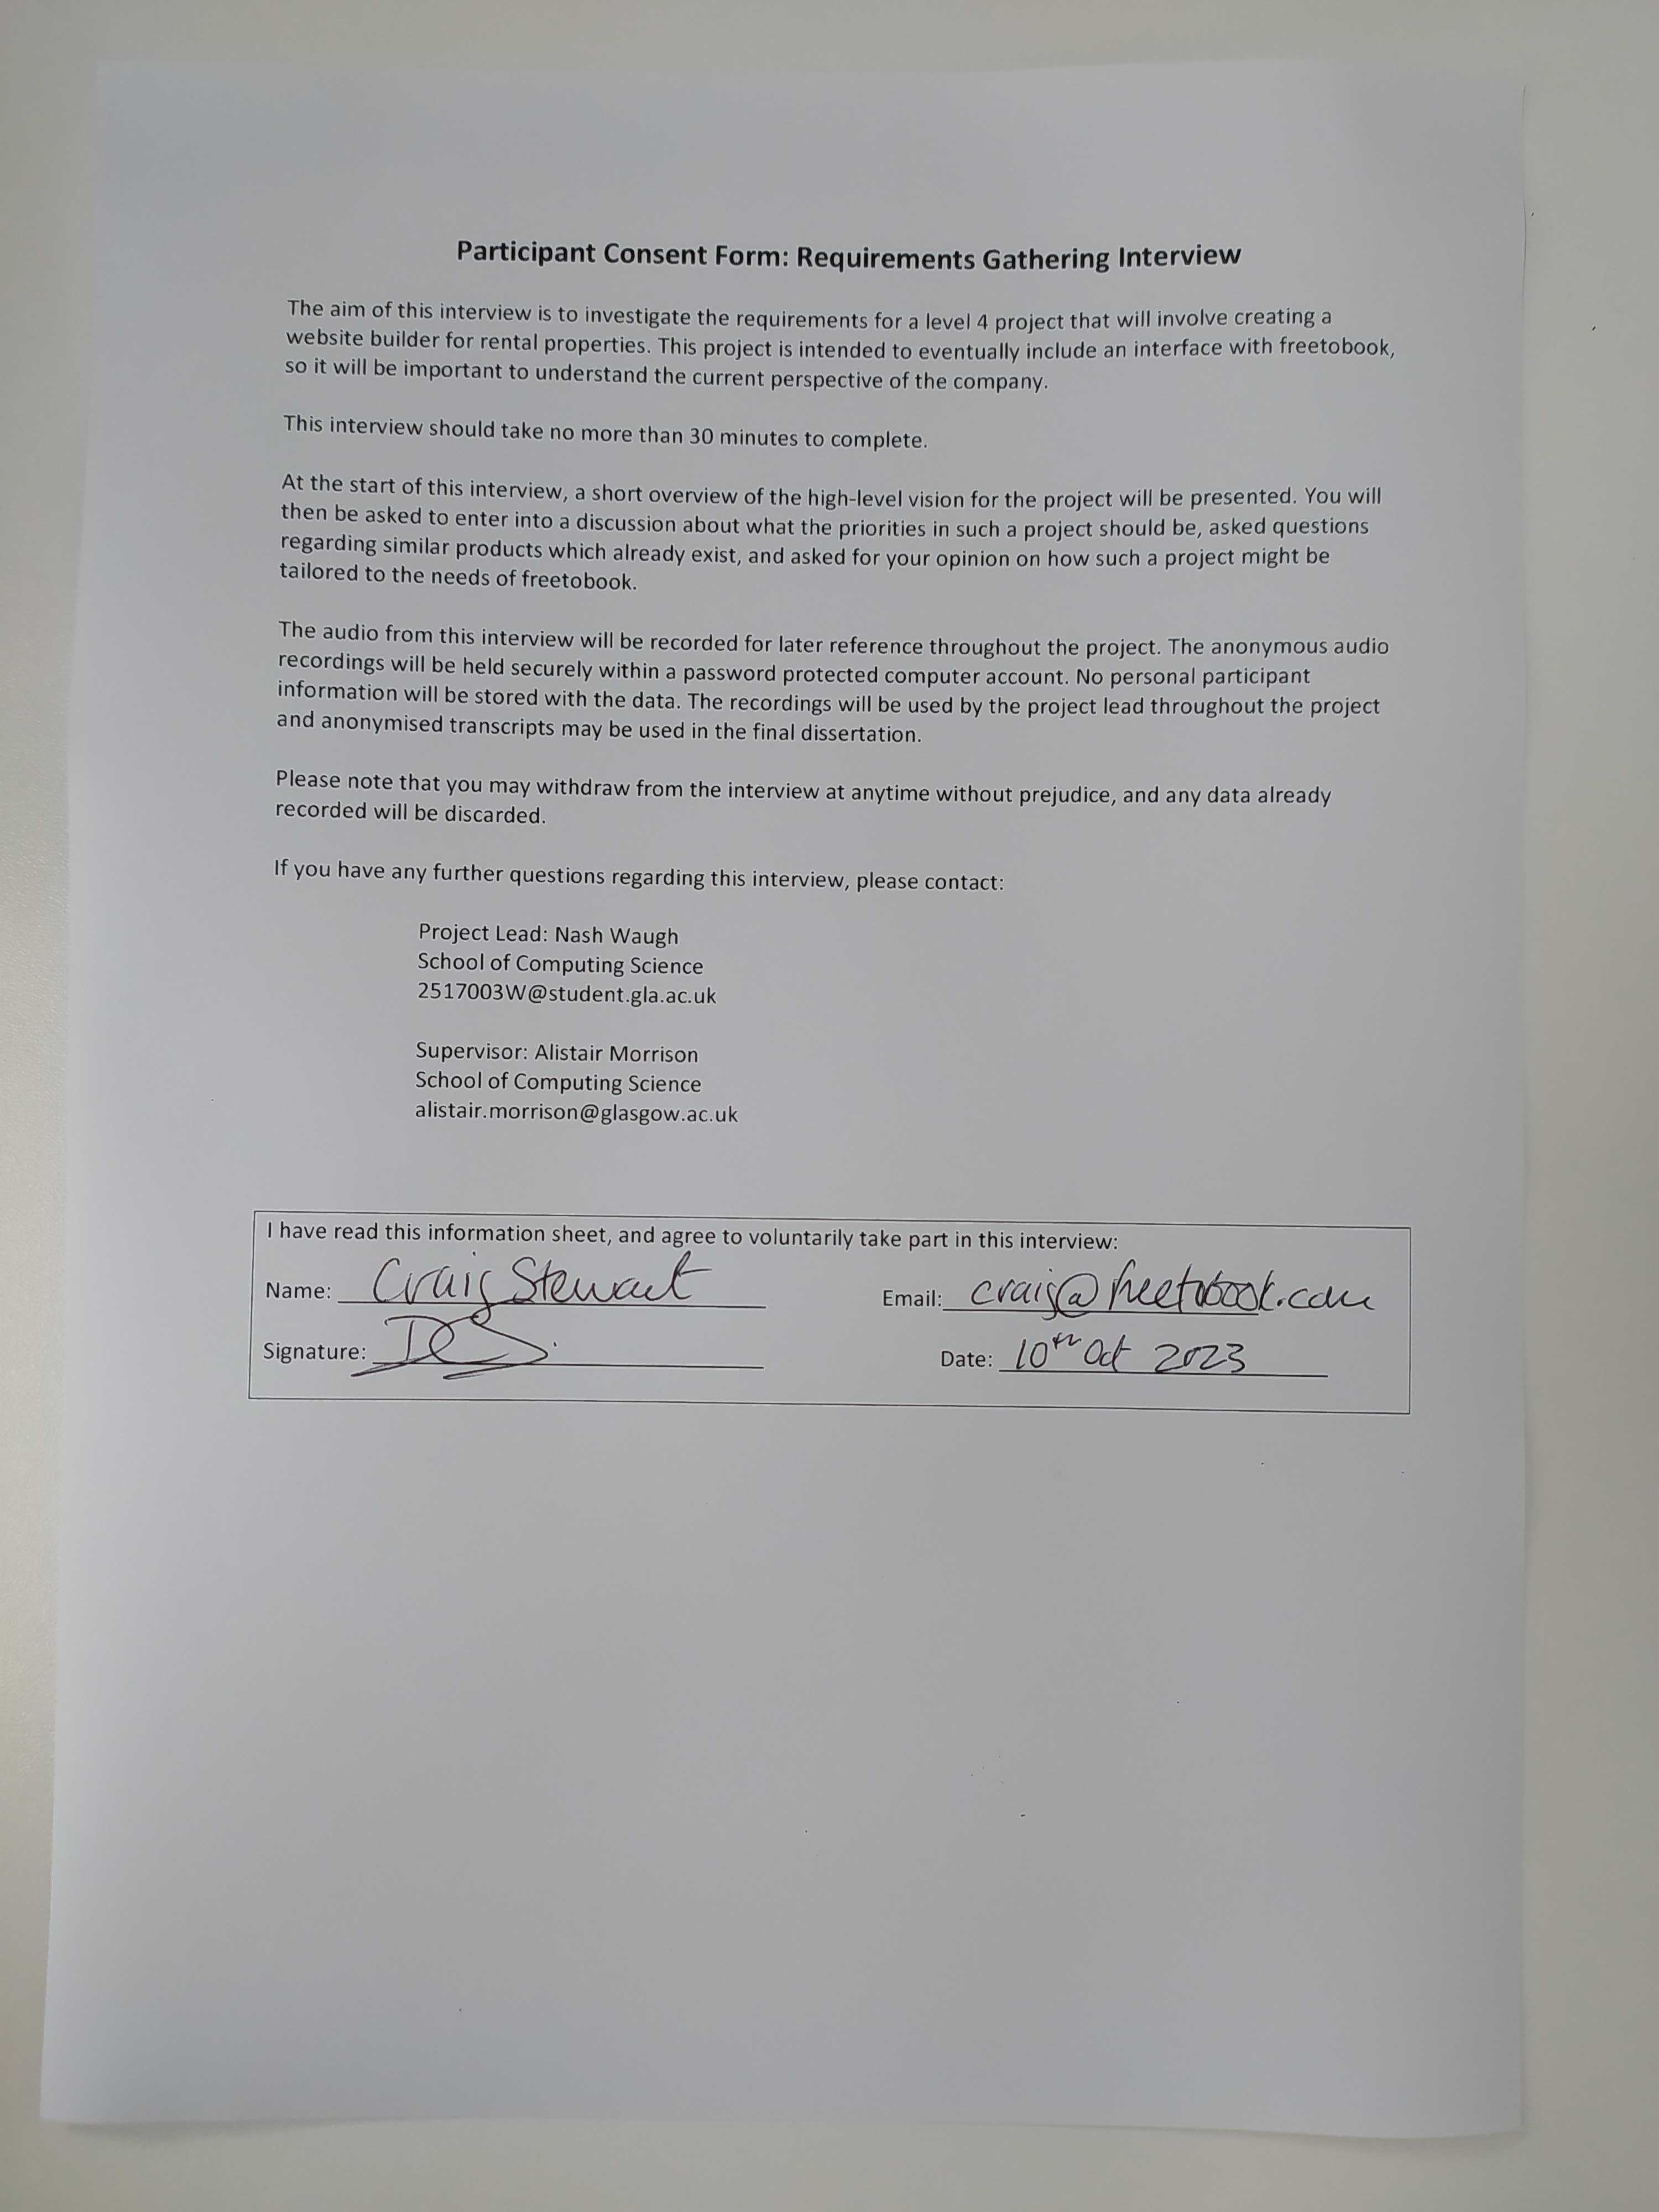 Participant Consent Form: Requirements Gathering Interview
The aim of this interview is to investigate the requirements for a level 4 project that will involve creating a
website builder for rental properties. This project is intended to eventually include an interface with freetobook,
so it will be important to understand the current perspective of the company.
This interview should take no more than 30 minutes to complete.
At the start of this interview, a short overview of the high-level vision for the project will be presented. You will
then be asked to enter into a discussion about what the priorities in such a project should be, asked questions
regarding similar products which already exist, and asked for your opinion on how such a project might be
tailored to the needs of freetobook.
The audio from this interview will be recorded for later reference throughout the project. The anonymous audio
recordings will be held securely within a password protected computer account. No personal participant
information will be stored with the data. The recordings will be used by the project lead throughout the project
and anonymised transcripts may be used in the final dissertation.
Please note that you may withdraw from the interview at anytime without prejudice, and any data already
recorded will be discarded.
If you have any further questions regarding this interview, please contact:
Project Lead: Nash Waugh
School of Computing Science
2517003W@student.gla.ac.uk
Supervisor: Alistair Morrison
School of Computing Science
alistair.morrison@glasgow.ac.uk
I have read this information sheet, and agree to voluntarily take part in this interview:
Name: Craig Stewart Email: craig@freetobook.com
Signature: DCS. Date: 10th Oct 2023